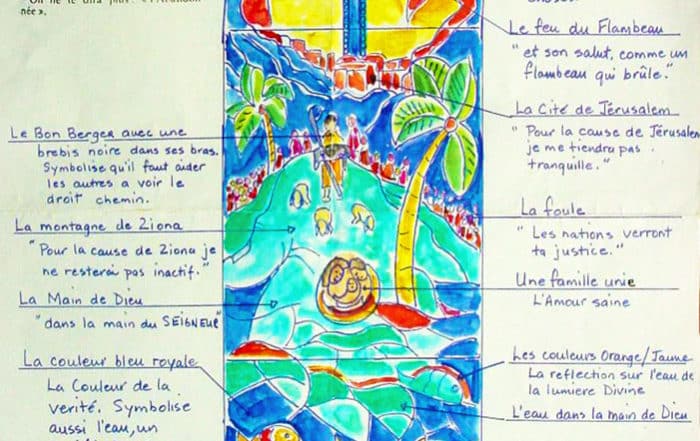 née ».
Le feu du Flambeau
"et son salut, comme un
flambeau qui brûle."
La Cité de Jérusalem
"Pour la cause de Jérusalem
je me tiendra pas
tranquille."
La foule
"Les nations verront
ta justice."
Une famille unie
L'Amour saine
Les couleurs Orange/Jaune
La reflection sur l'eau de
la lumiere Divine
L'eau dans la main de Dieu
Le Bon Berger avec une
brebis noire dans ses bras.
Symbolise qu'il faut aider
les autres a voir le
droit chemin.
La montagne de Ziona
"Pour la cause de Ziona je
ne resterai pas inactif."
La Main de Dieu
"dans la main du SEIGNEUR"
La couleur bleu royale
La Couleur de la
verité. Symbolise
aussi l'eau, un